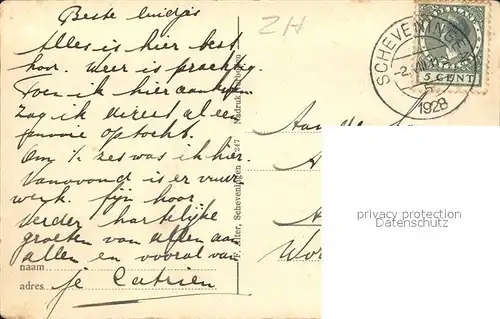 Beste luidjes
Alles is hier best
hoor. Weer is prachtig.
Toen ik hier aankwam
Zag ik direct al een
optocht.
Om ½ zes was ik hier.
Vanavond is er vuur
werk. fijn hoor.
Verder hartelijke
groeten van allen aan
allen en vooral van
je Catrien
naam
adres
F. Alter, Scheveningen 247 Nadruk verboden
ZH
SCHEVENINGEN
1928
5 CENT
Aan
privacy protection
Datenschutz